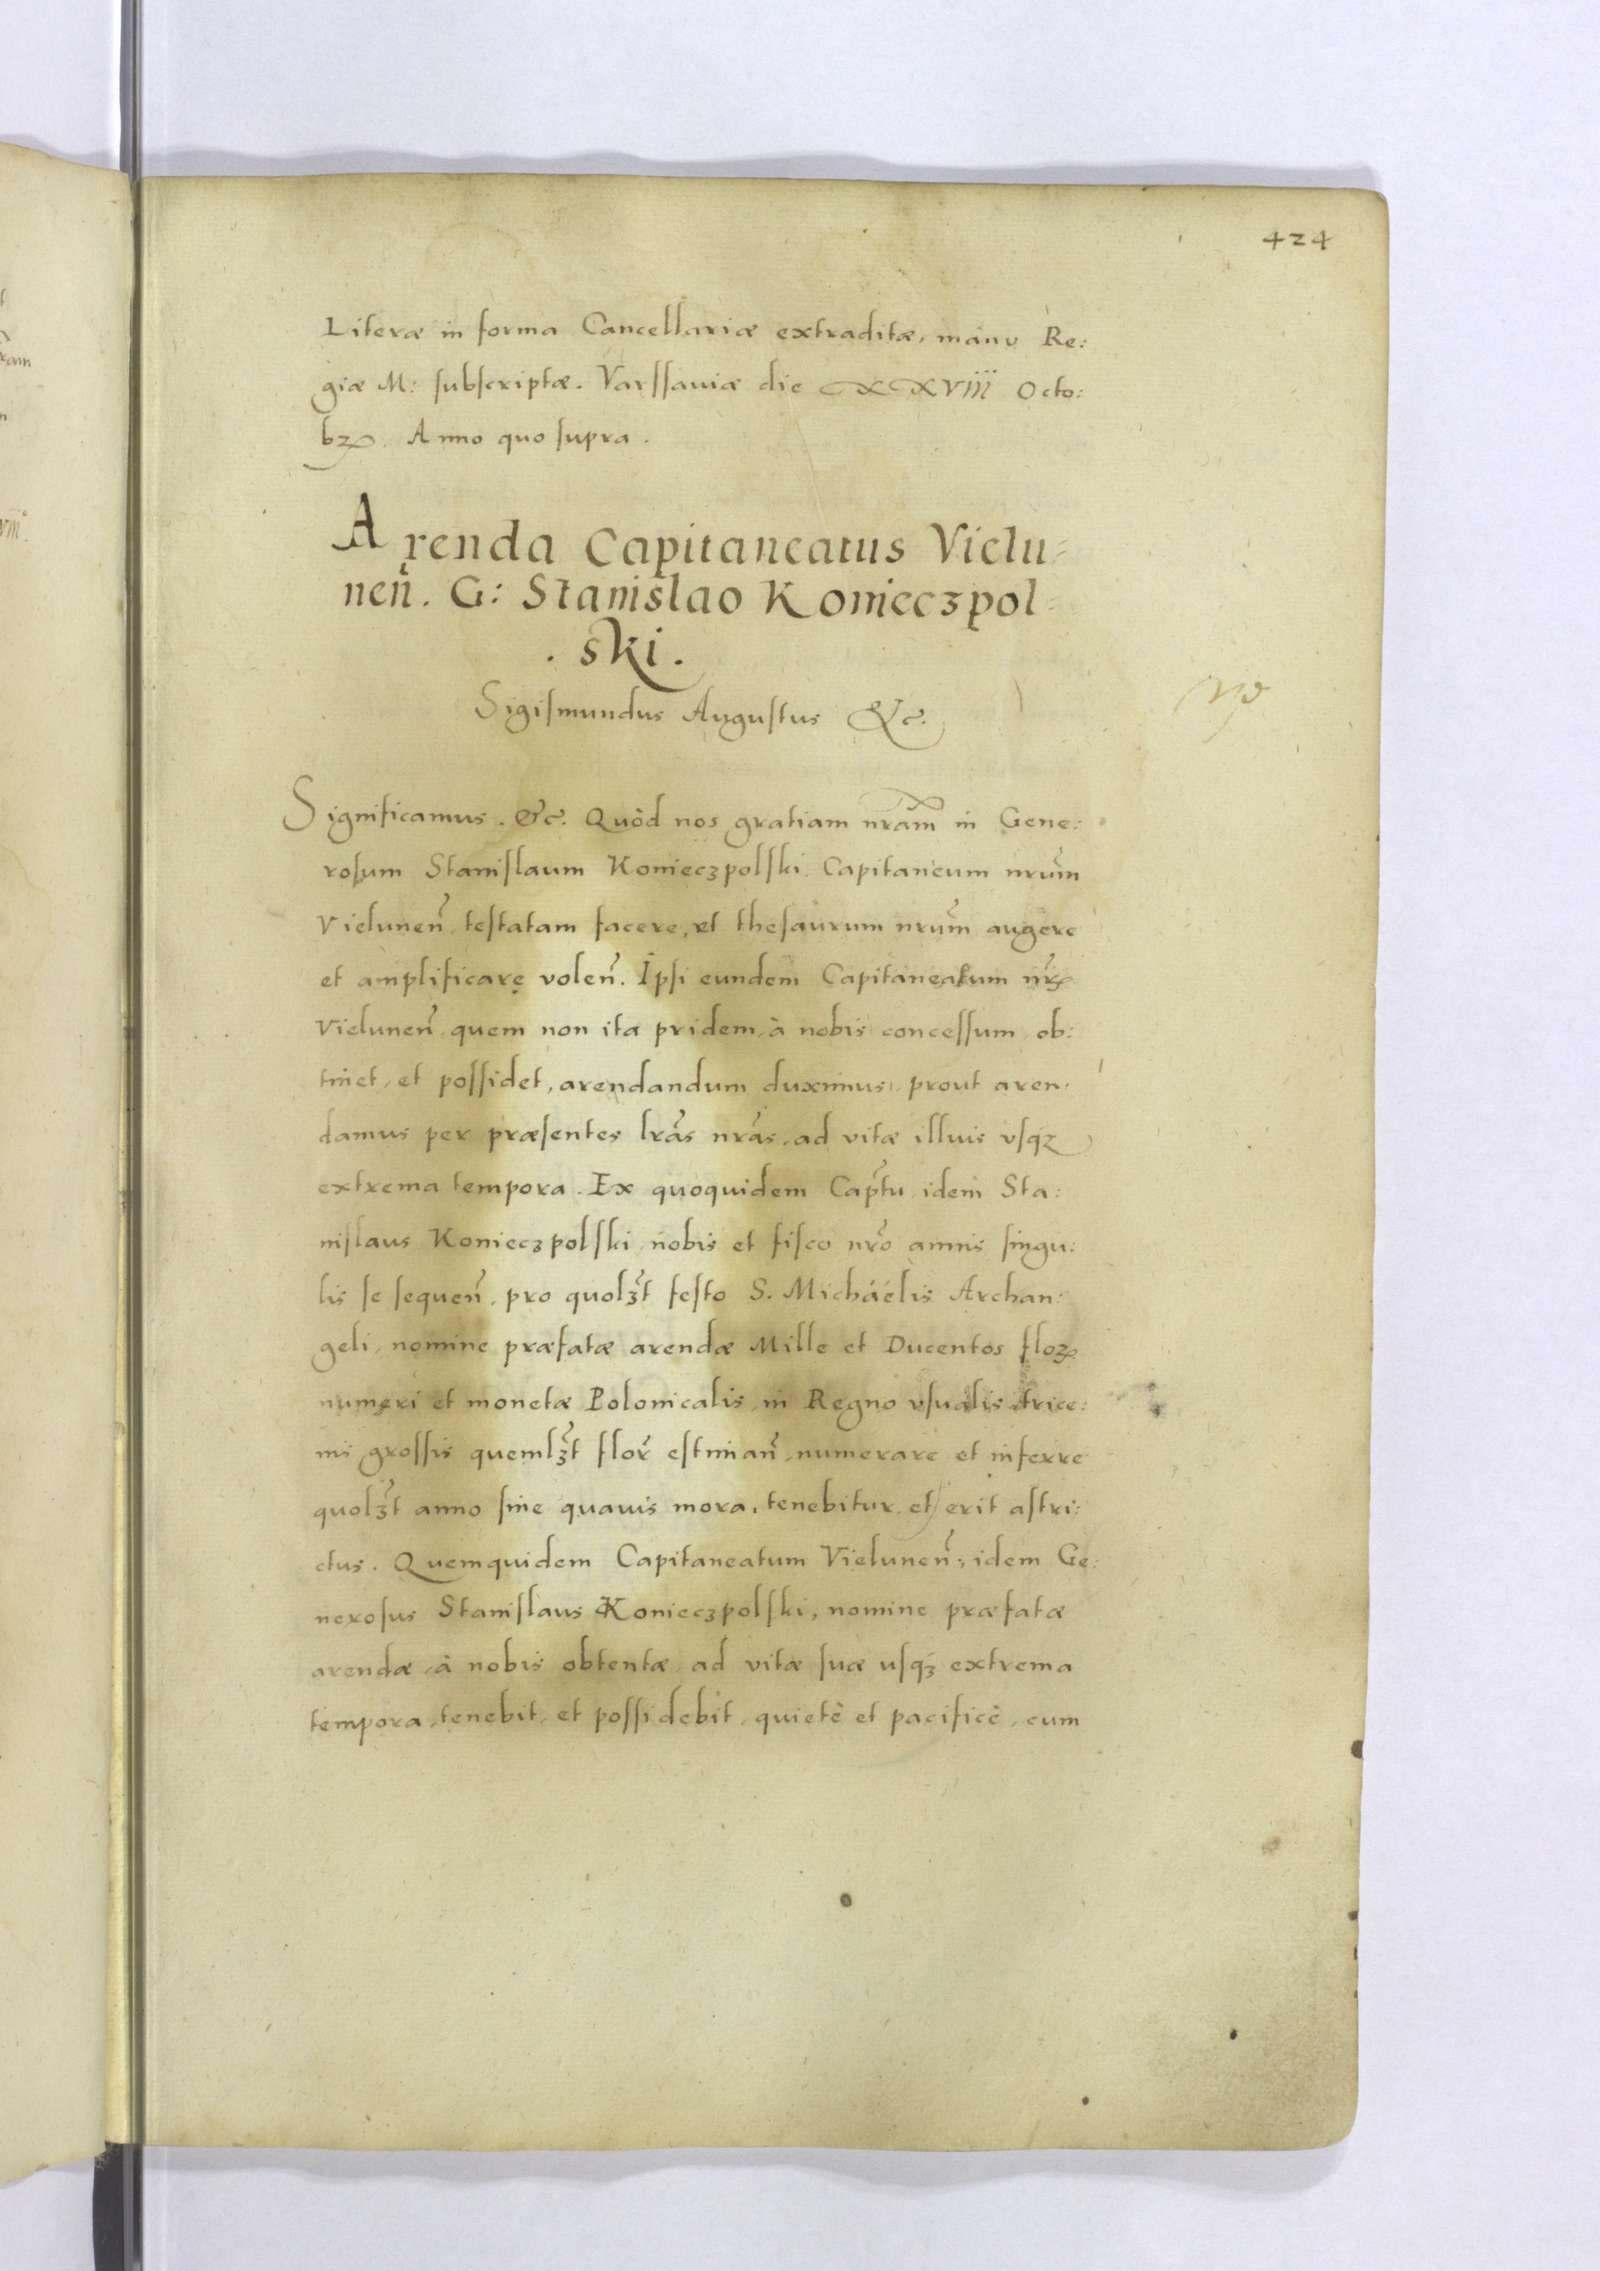 424
Literæ in forma Cancellariæ extraditæ, manu Re:
giæ M: subscriptæ. Varssauiæ die XXVIII Octo:
bꝝ. Anno quo supra.
Arenda Capitaneatus Vielu=
nen̄. G: Stanislao Koniecʒpol=
. ski.
Sigismundus Augustus &c.
Significamus. &c. Quòd nos gratiam nr̄am in Gene:
rosum Stanislaum Koniecʒpolski Capitaneum nrūm
Vielunen̄ testatam facere, et thesaurum nrūm augere
et amplificare volen̄. Ipsi eundem Capitaneatum nrꝝ
Vielunen̄ quem non ita pridem, à nobis concessum, ob:
tinet, et possidet, arendandum duximus, prout aren:
damus per præsentes lrās nrās, ad vitæ illius vsqꝫ
extrema tempora. Ex quoquidem Cap̄tu, idem Sta:
nislaus Koniecʒpolski nobis et fisco nrō annis singu:
lis se sequen̄, pro quolꝫt festo S. Michäélis Archan:
geli, nomine præfatæ arendæ Mille et Ducentos floꝝ
numeri et monetæ Polonicalis, in Regno vsualis trice:
nis grossis quemlꝫt flor̄ estiman̄, numerare et inferre
quolꝫt anno sine quauis mora, tenebitur, et erit astri:
ctus. Quemquidem Capitaneatum Vielunen̄, idem Ge:
nerosus Stanislaus Koniecʒpolski, nomine præfatæ
arendæ, à nobis obtentæ, ad vitæ suæ usqꝫ extrema
tempora, tenebit, et possidebit, quietè et pacificè, cum